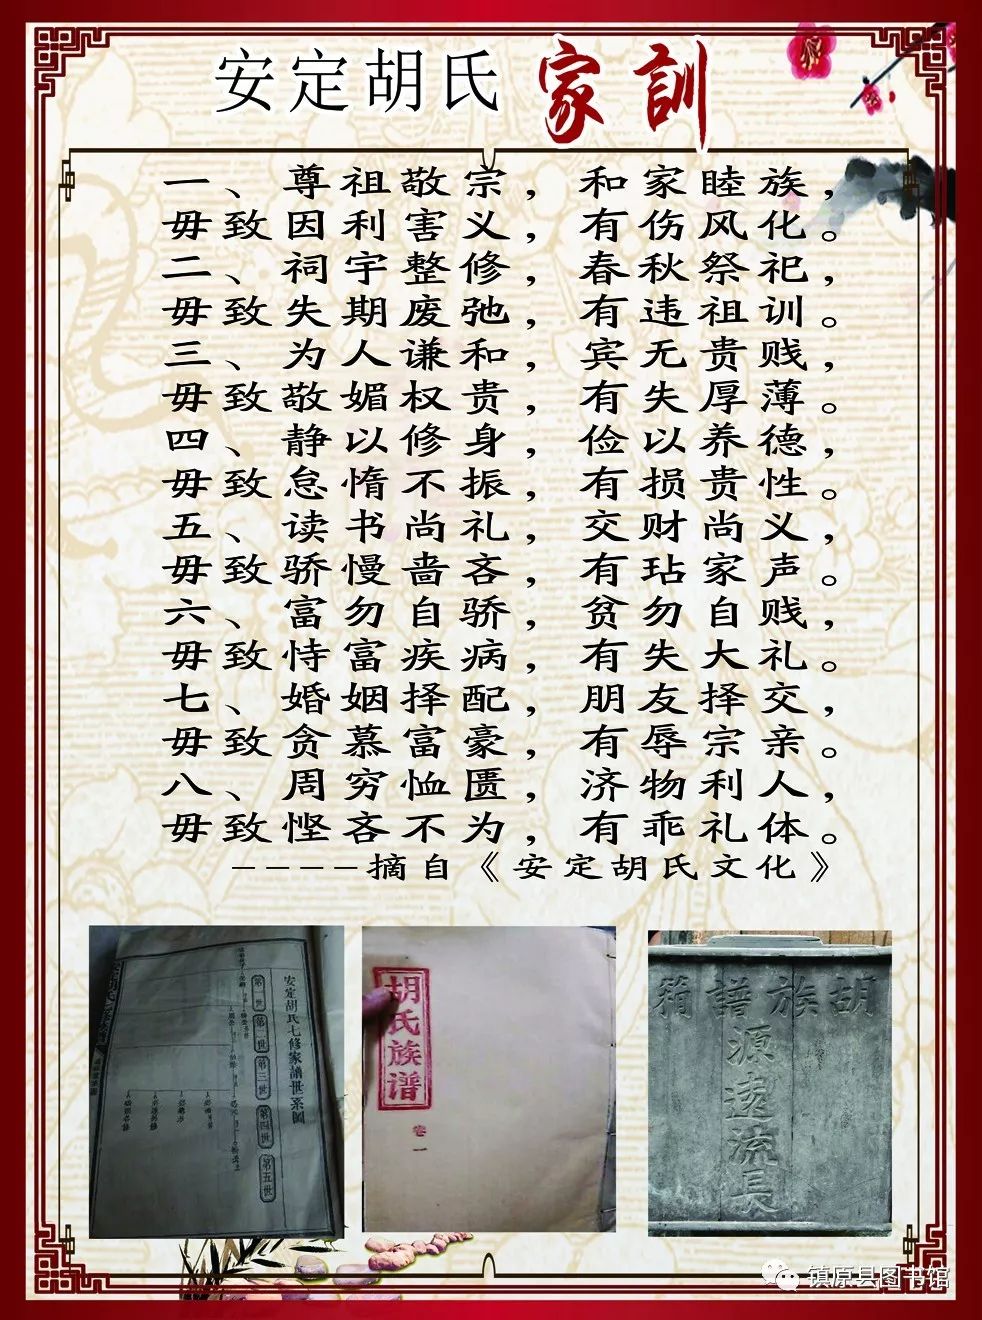 安定胡氏 家訓
一、尊祖敬宗，和家睦族，
毋致因利害义，有伤风化。
二、祠宇整修，春秋祭祀，
毋致失期废弛，有违祖训。
三、为人谦和，宾无贵贱，
毋致敬媚权贵，有失厚薄。
四、静以修身，俭以养德，
毋致怠惰不振，有损贵性。
五、读书尚礼，交财尚义，
毋致骄慢啬吝，有玷家声。
六、富勿自骄，贫勿自贱，
毋致恃富疾病，有失大礼。
七、婚姻择配，朋友择交，
毋致贪慕富豪，有辱宗亲。
八、周穷恤匮，济物利人，
毋致悭吝不为，有乖礼体。
----摘自《安定胡氏文化》
安定胡氏七修家譜世系圖
第一世
第二世
第三世
第四世
第五世
胡氏族谱
卷一
胡族譜箱
源遠流長
镇原县图书馆